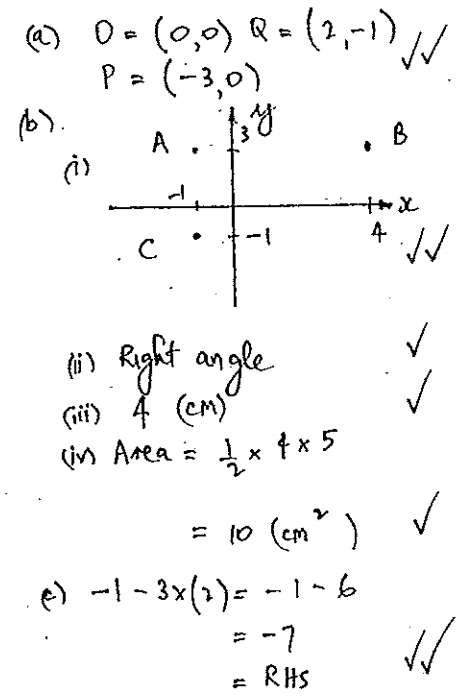 (a) O = (0,0) Q = (2,-1) ✓✓
P = (-3,0)
(b).
(i)
y
A 3 B
-1 x
4
C -1 ✓✓
(ii) Right angle ✓
(iii) 4 (cm) ✓
(iv) Area = 1/2 × 4 × 5
= 10 (cm²) ✓
c) -1 - 3×(2) = -1 - 6
= -7
= RHS ✓✓